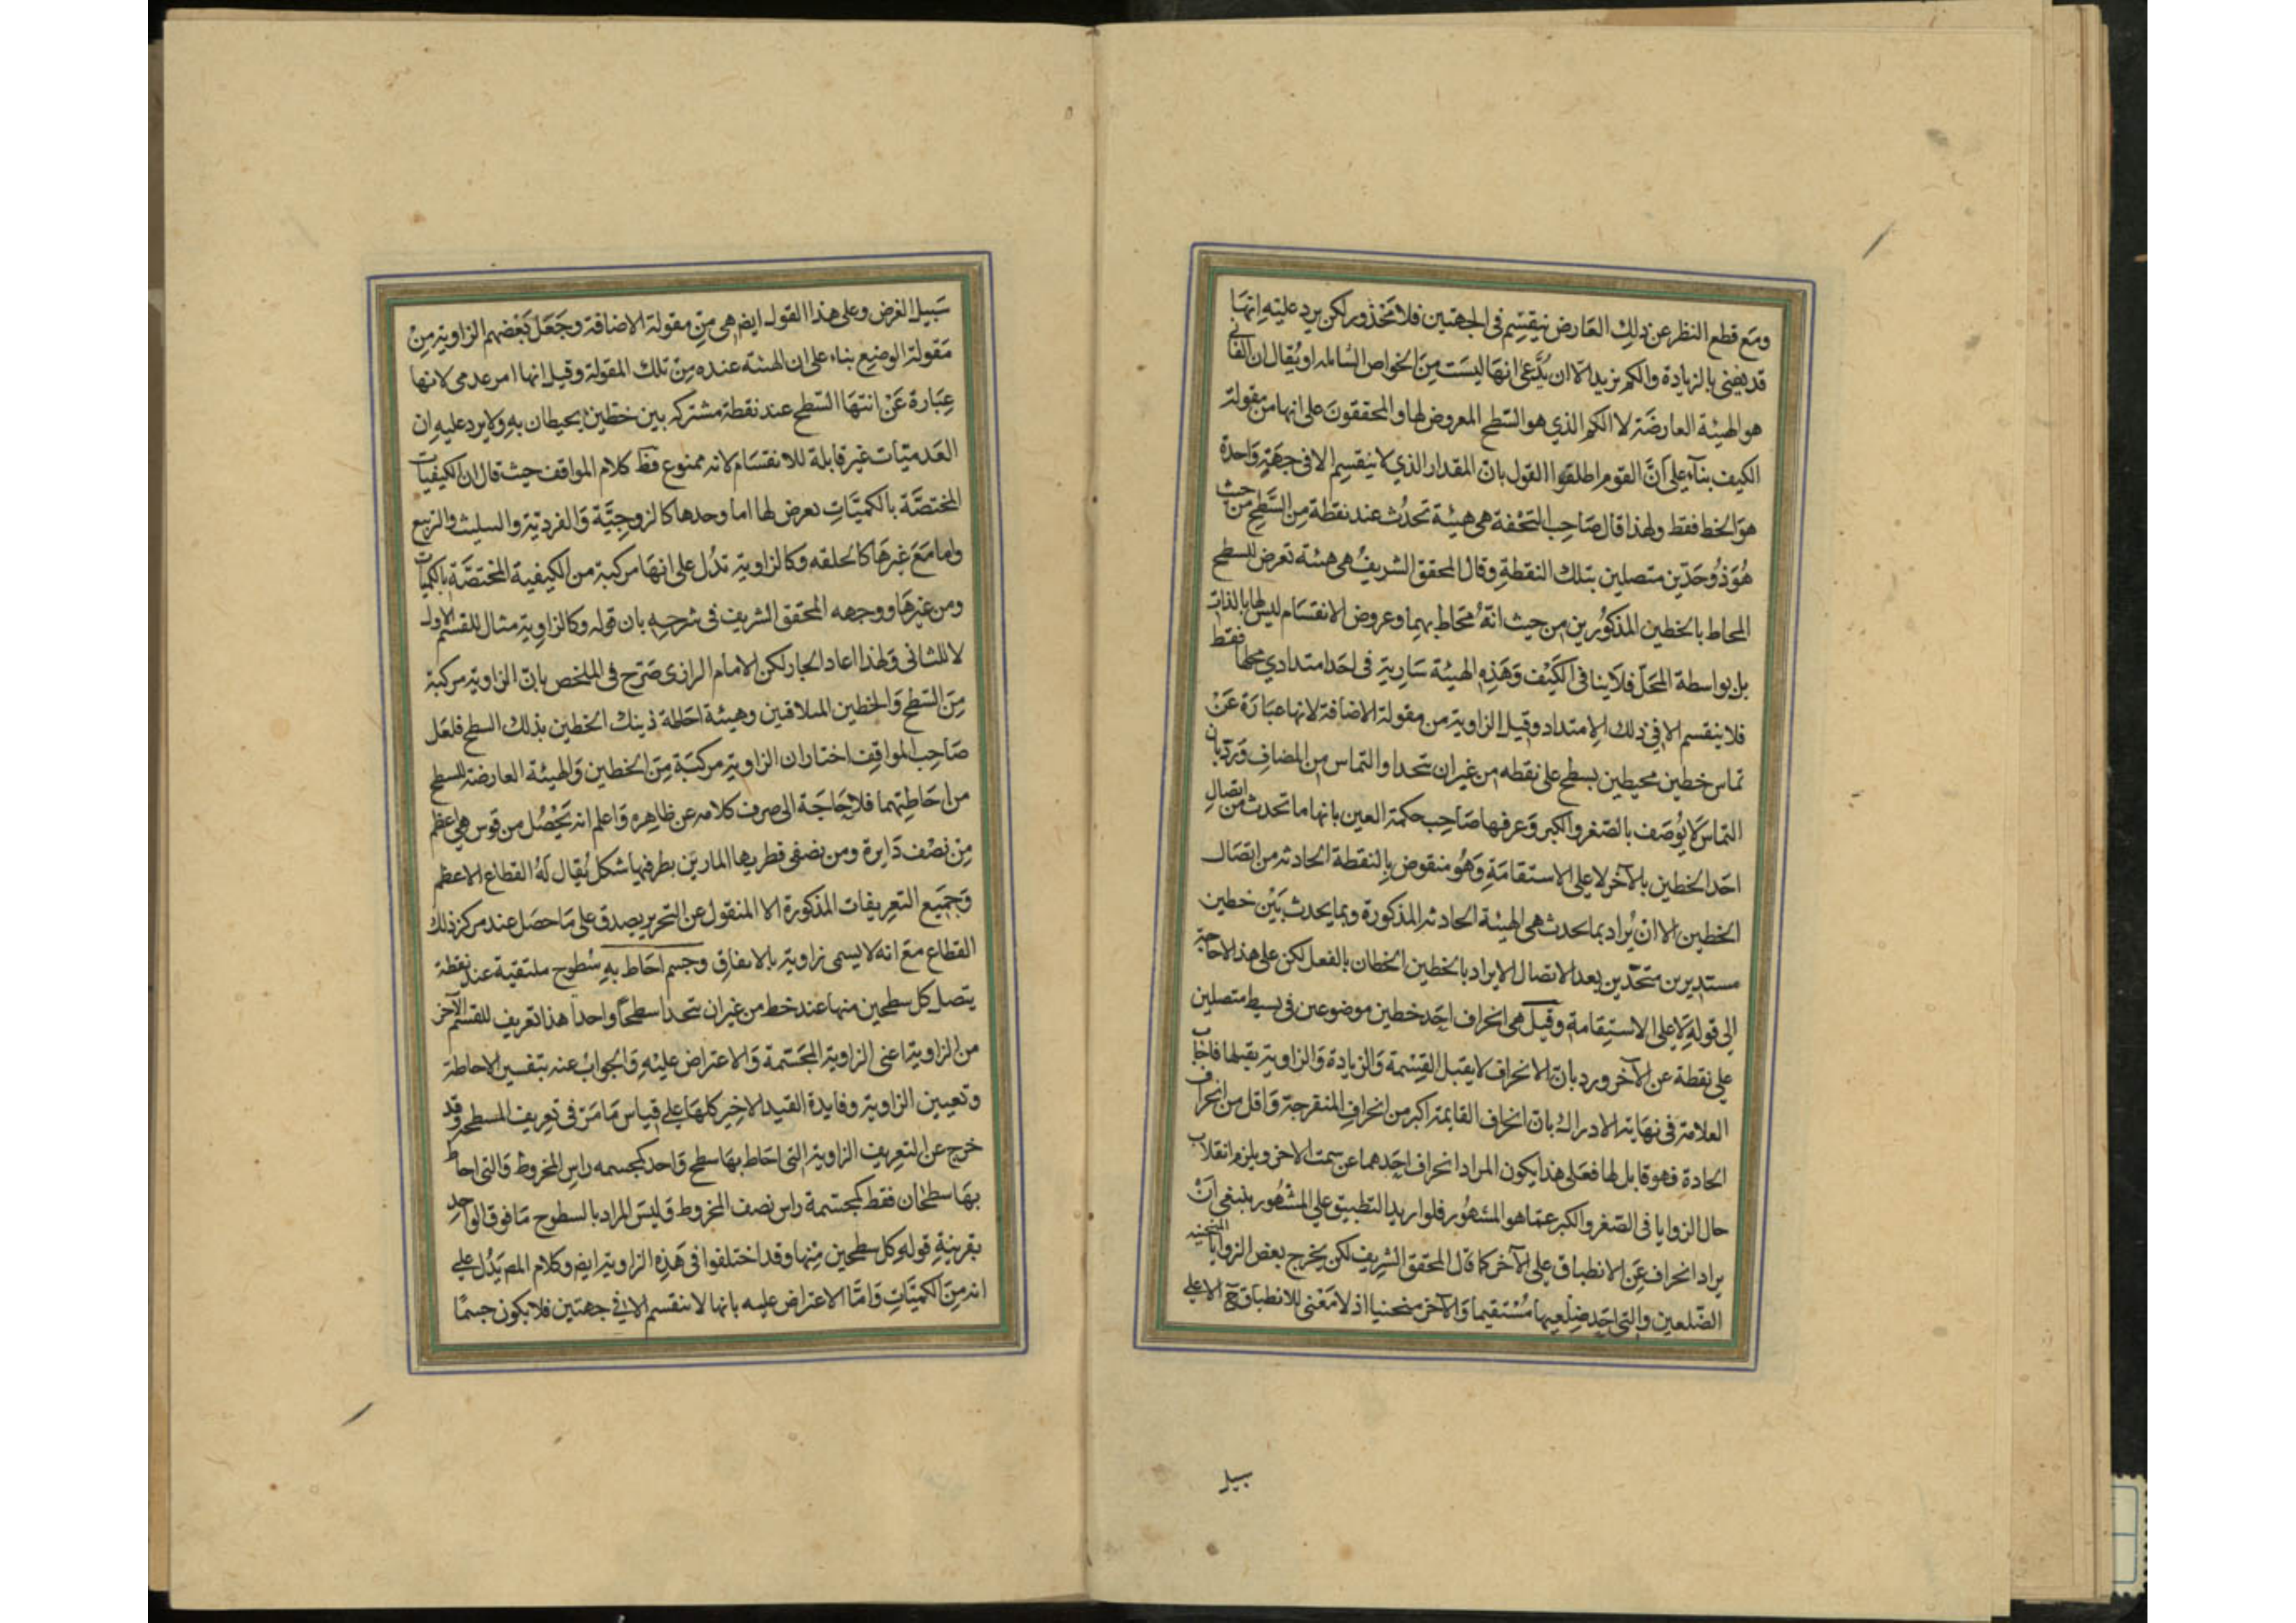 ومع قطع النظر عن ذلك العارض ينقسم في الجهتين فلا محذور لكن يرد عليه انها
قد يفنى بالزيادة والكم يزيد الا ان يدعى انها ليست من الخواص الشاملة او يقال ان الفانى
هو الهيئة العارضة لا الكم الذي هو السطح المعروض لها والمحققون على انها من مقولة
الكيف بناء على أن القوم اطلقوا القول بان المقدار الذي لا ينقسم الا في جهة واحدة
هو الخط فقط ولهذا قال صاحب التحفة هي هيئة تحدث عند نقطة من السطح من حيث
هو ذو حدين متصلين بتلك النقطة وقال المحقق الشريف هي هيئة تعرض للسطح
المحاط بالخطين المذكورين من حيث انه محاط بهما وعروض الانقسام ليس لها بالذات
بل بواسطة المحل فلا ينافي الكيف وهذه الهيئة سارية في احد امتدادي محلها فقط
فلا ينقسم الا في ذلك الامتداد وقيل الزاوية من مقولة الاضافة لانها عبارة عن
تماس خطين محيطين بسطح على نقطه من غير ان يتحدا والتماس من المضاف ورد بان
التماس لا يوصف بالصغر والكبر وعرفها صاحب حكمة العين بانها ما تحدث من اتصال
احد الخطين بالآخر لا على الاستقامة وهو منقوض بالنقطة الحادثه من اتصال
الخطين الا ان يراد بما يحدث هي الهيئة الحادثه المذكورة وبما يحدث بين خطين
مستديرين متحدين بعد الاتصال الا يراد بالخطين الخطان بالفعل لكن على هذا لا حاجة
الى قوله لا على الاستقامة وقيل هي انحراف احد خطين موضوعين في بسيط متصلين
على نقطة عن الآخر ورد بان الانحراف لا يقبل القسمة والزيادة والزاوية يقبلها فاجاب
العلامة في نهاية الادراك بان انحراف القايمة اكبر من انحراف المنفرجة واقل من انحراف
الحادة فهو قابل لها فعلى هذا يكون المراد انحراف احدهما عن سمت الاخر ويلزم انقلاب
حال الزوايا في الصغر والكبر عما هو المشهور فلو اريد التطبيق على المشهور ينبغي ان
يراد انحراف عن الانطباق على الآخر كما قال المحقق الشريف لكن يخرج بعض الزوايا المنحنيه
الضلعين والتي احد ضلعيها مستقيما والآخر منحنيا اذ لا معنى للانطباق ح الا على
سبيل
سبيل الفرض وعلى هذا القول ايض هي من مقولة الاضافة وجعل بعضهم الزاوية من
مقولة الوضع بناء على ان الهيئة عنده من تلك المقولة وقيل انها امر عدمي لانها
عبارة عن انتها السطح عند نقطة مشتركه بين خطين يحيطان به ولا يرد عليه ان
العدميات غير قابلة للانقسام لانه ممنوع فظ كلام المواقف حيث قال ان الكيفيات
المختصة بالكميات تعرض لها اما وحدها كالزوجية والفردية والتثليث والتربيع
واما مع غيرها كالحلقه وكالزاوية تدل على انها مركبة من الكيفية المختصة بالكميات
ومن غيرها ووجهه المحقق الشريف في شرحه بان قوله وكالزاوية مثال للقسم الاول
لا للثاني ولهذا اعاد الجار لكن الامام الرازى صرح في الملخص بان الزاوية مركبة
من السطح والخطين المتلاقيين وهيئة احاطة ذينك الخطين بذلك السطح فلعل
صاحب المواقف اختار ان الزاوية مركبة من الخطين والهيئة العارضة للسطح
من احاطتهما فلا حاجة الى صرف كلامه عن ظاهره واعلم انه يحصل من قوس هي اعظم
من نصف دايرة ومن نصفى قطريها المارين بطرفيها شكل يقال له القطاع الاعظم
وجميع التعريفات المذكورة الا المنقول عن التحرير يصدق على ما حصل عند مركز ذلك
القطاع مع انه لا يسمى زاوية بالاتفاق وجسم احاط به سطوح ملتقية عند نقطة
يتصل كل سطحين منها عند خط من غير ان يتحدا سطحا واحدا هذا تعريف للقسم الآخر
من الزاوية اعنى الزاوية المجسمة والاعتراض عليه والجواب عنه بتفسير الاحاطة
وتعيين الزاوية وفايدة القيد الاخير كلها على قياس ما مر في تعريف المسطحه وقد
خرج عن التعريف الزاوية التي احاط بها سطح واحد كمجسمه راس المخروط والتي احاط
بها سطحان فقط كمجسمة راس نصف المخروط وليس المراد بالسطوح ما فوق الواحد
بقرينة قوله كل سطحين منها وقد اختلفوا في هذه الزاوية ايض وكلام المص يدل على
انه من الكميات واما الاعتراض عليه بانها لا تنقسم الا في جهتين فلا يكون جسما